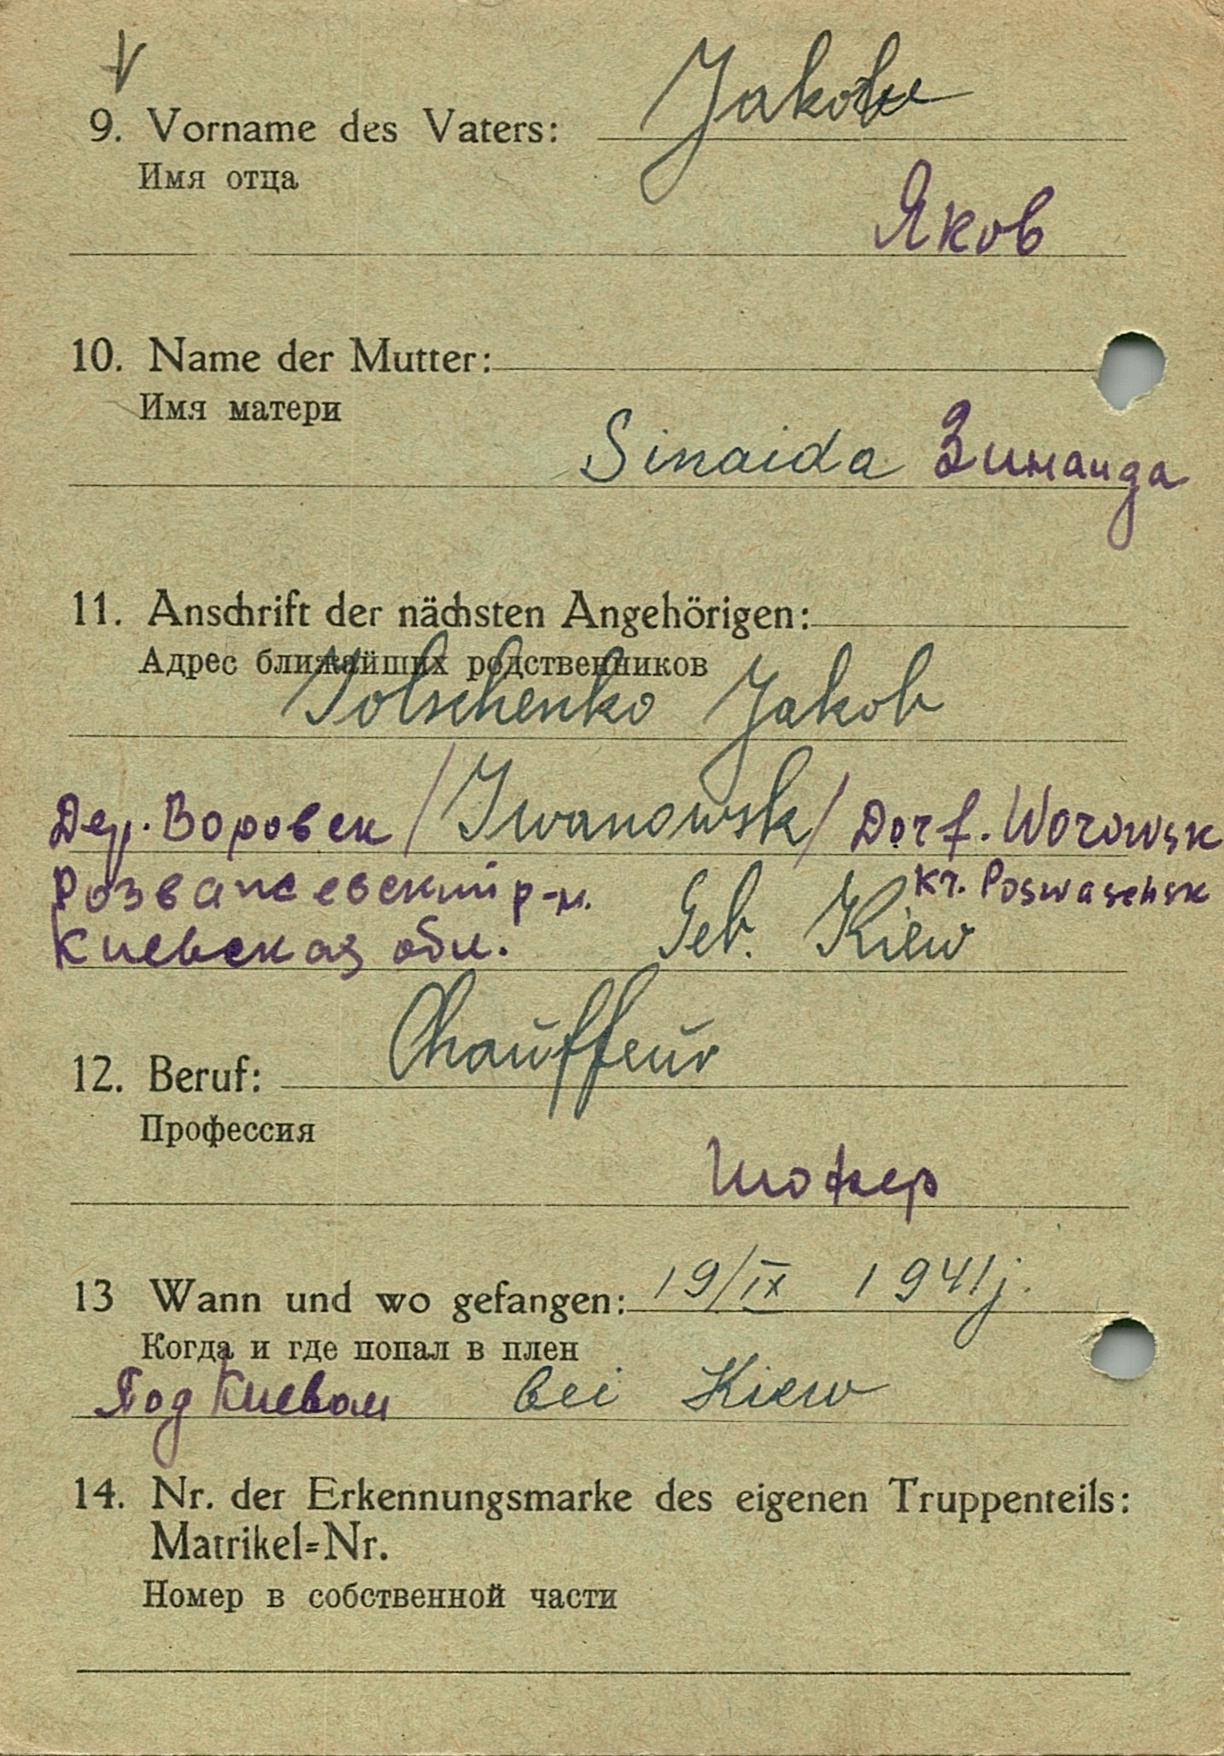 9. Vorname des Vaters: Jakob
Имя отца
Яков
10. Name der Mutter:
Имя матери
Sinaida Зинаида
11. Anschrift der nächsten Angehörigen:
Адрес ближайших родственников
Jakob
Дер. Воровск / Iwanowsk / Dorf. Worowsk
Розважевский р-н. Kr. Poswaschsk
Киевская обл. Geb. Kiew
12. Beruf: Chauffeur
Профессия
Шофер
13 Wann und wo gefangen: 19/IX 1941 j.
Когда и где попал в плен
Под Киевом bei Kiew
14. Nr. der Erkennungsmarke des eigenen Truppenteils:
Matrikel=Nr.
Номер в собственной части